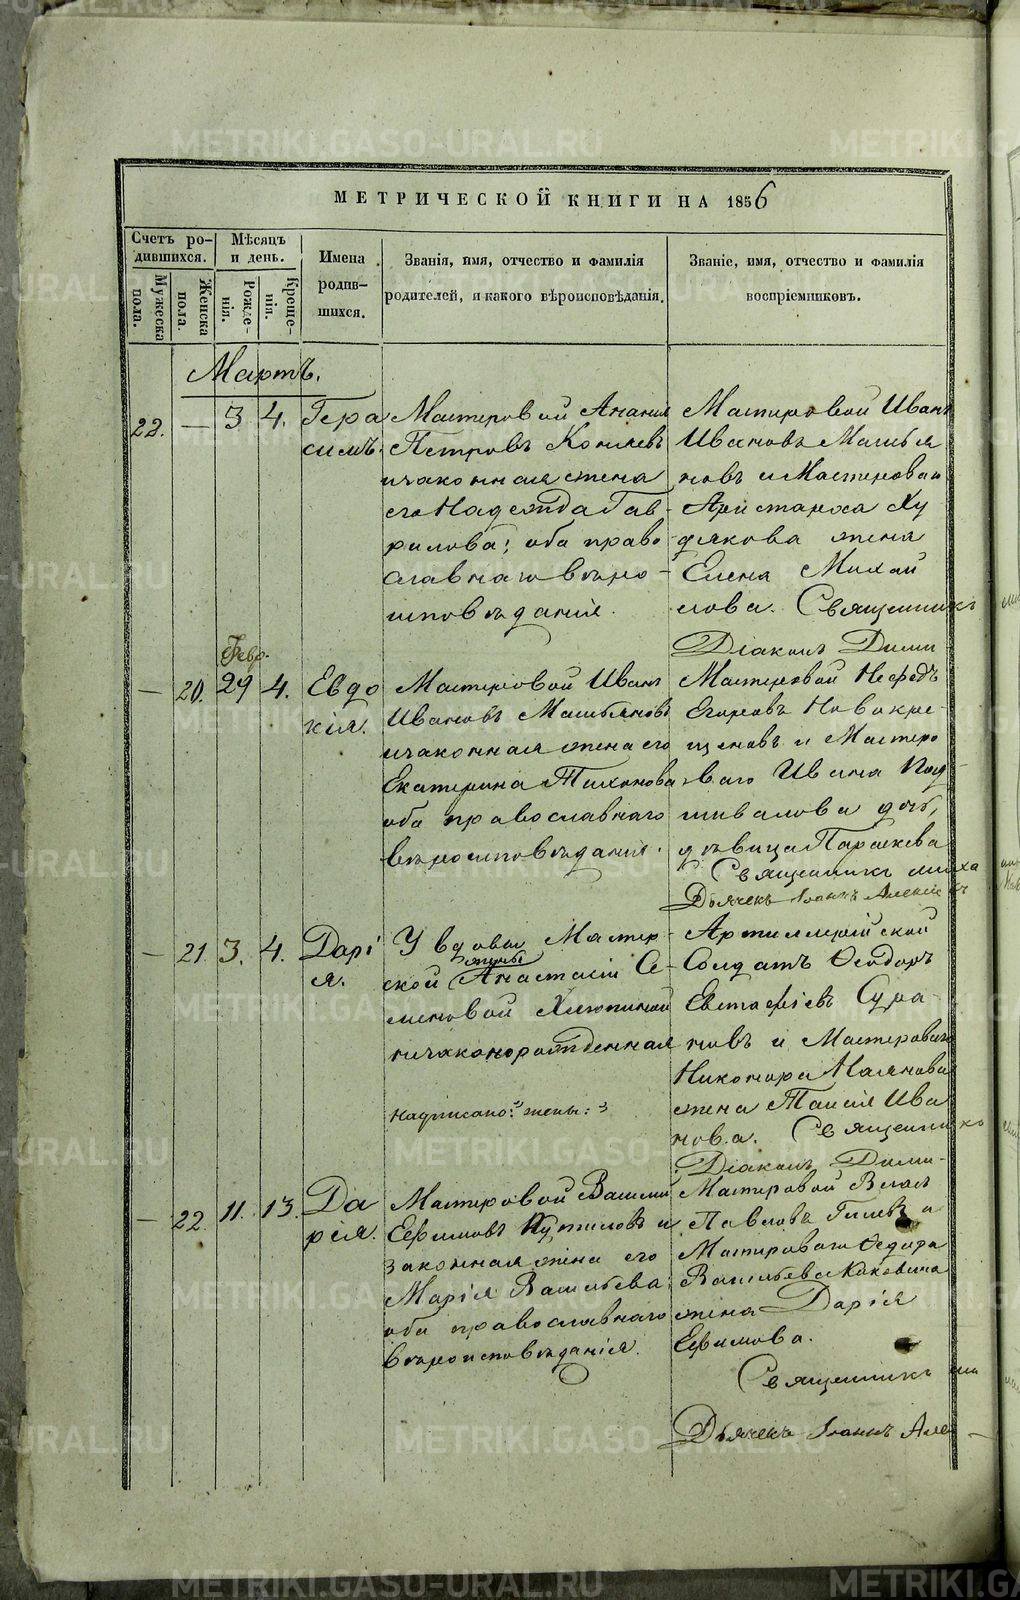 МЕТРИЧЕСКОЙ КНИГИ НА 1856
Счетъ ро-
дившихся.
Мужеска
пола.
Женска
пола.
Мѣсяцъ
и день.
Рожде-
нія.
Креще-
нія.
Имена
родив-
шихся.
Званія, имя, отчество и фамилія
родителей, и какого вѣроисповѣданія.
Званіе, имя, отчество и фамилія
воспріемниковъ.
Мартъ.
22. — 3 4.
Гера
симъ.
Мастеровой Ананія
Петровъ
изаконная жена
его Надежда Гав-
рилова; оба право
славнаго вѣро-
исповѣданія.
Мастеровой Иванъ
Ивановъ Машья
новъ и Мастероваго
Аристарха Ху
дякова жена
Елена Михай
лова. Священникъ
Діаконъ Дими-
— 20. Февр. 29 4.
Евдо
кія.
Мастеровой Иванъ
Ивановъ
изаконная жена его
Екатерина Тихонова
оба православнаго
вѣроисповѣданія.
Мастеровой Нефедъ
Егоровъ Новокре-
щеновъ и Мастеро
ваго Ивана Под-
шивалова дочь,
дѣвица Параскева
Священникъ миха
Дьячекъ Іоаннъ Алексѣевъ
— 21. 3. 4.
Дарі
я.
У вдовы Мастер-
жены
ской Анастасіи Се-
меновой
незаконорожденная
надписано: жены:
Артиллерійской
Солдатъ Ѳеодоръ
Евстафіевъ Сура-
новъ и Мастероваго
Никонора
жена Таисія Ива
нова. Священникъ
Діаконъ Дими-
— 22. 11. 13.
Да
рія.
Мастеровой Василій
Ефимовъ и
законная жена его
Марія Васильева;
оба православнаго
вѣроисповѣданія.
Мастеровой Власъ
Павловъ Гилевъ и
Мастероваго Ѳедора
Васильева
жена Дарія
Ефимова.
Священникъ ми
Дьячекъ Іоаннъ Але-
METRIKI.GASO-URAL.RU